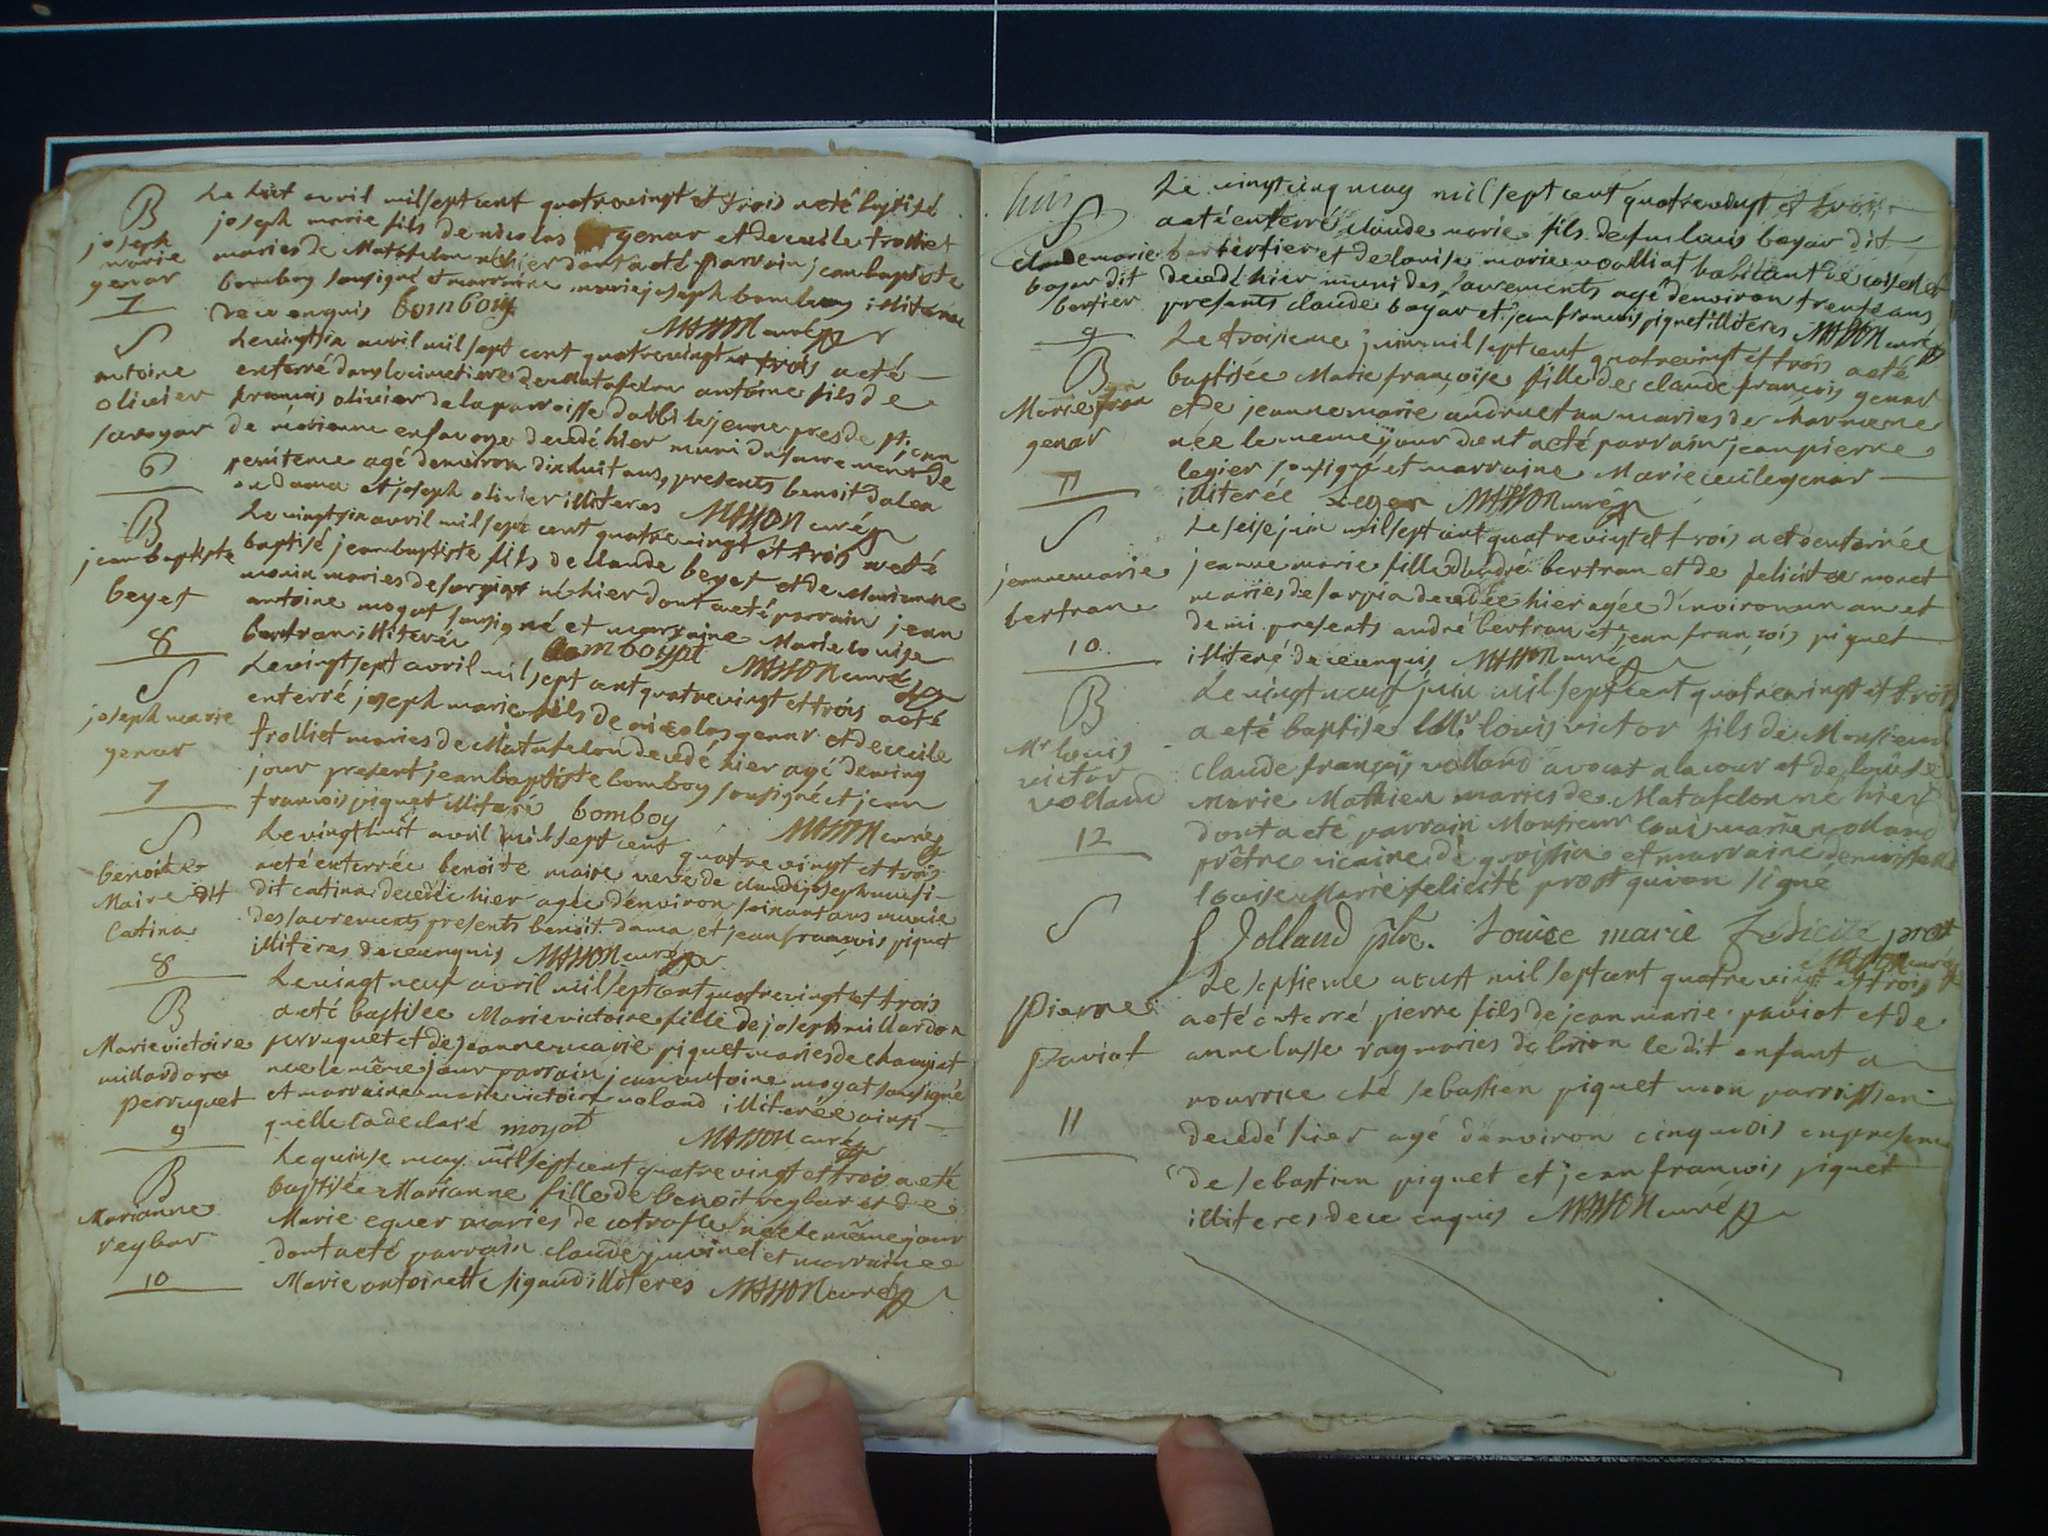 B
joseph
marie
genar
7
Le huit avril mil sept cent quatrevingt et trois a eté baptisé
joseph marie fils de nicolas genar et de cecile trolliet
maries de Matafelon né hier dont a eté parrain jean baptiste
bomboy sousigné et marraine marie joseph bomboy illiterée
de ce enquis bomboy
MASSON curé
S
antoine
olivier
savoyar
6
Le vingt six avril mil sept cent quatrevingt et trois a eté
enterré dans le cimetiere de matafelon antoine fils de
francois olivier de la parroisse
de morienne en savoye decedé hier muni du sacrement de
penitence agé denviron dix huit ans, presents benoit
dama et joseph olivier illiteres MASSON curé
B
jean baptiste
beyet
8
Le vingt six avril mil sept cent quatrevingt et trois a eté
baptisé jean baptiste fils de claude beyet et de Marianne
monin maries de sorpiat né hier dont a eté parrain jean
antoine moyat sousigné et marraine Marie louise
bertran illiterée
MASSON curé
S
joseph marie
genar
7
Le vingt sept avril mil sept cent quatrevingt et trois a eté
enterré joseph marie fils de nicolas genar et de cecile
trolliet maries de Matafelon decedé hier agé de vingt
jour present jean baptiste bomboy sousigné et jean
francois piquet illiteré bomboy
MASSON curé
S
benoite
Maire dit
Catina
8
Le vingt huit avril mil sept cent quatre vingt et trois
a eté enterrée benoite maire veve de claude joseph
dit catina decedée hier agée denviron soixant ans munie
des sacrements presents benoit dama et jean francois piquet
illiteres de ce enquis MASSON curé
B
Marie victoire
millardon
perruquet
9
Le vingt neuf avril mil sept cent quatrevingt et trois
a eté baptisée Marie victoire fille de joseph millardon
perruquet et de jeanne marie piquet maries de
née le même jour parrain jean antoine moyat sousigné
et marraine marie victoire voland illiterée ainsi
quelle la declaré moyat
MASSON curé
B
Marianne
reybar
10
Le quinse may mil sept cent quatre vingt et trois a eté
baptisée Marianne fille de benoit reybar et de
Marie equer maries de née le même jour
dont a eté parrain claude juvinet et marraine
Marie antoinette sigaud illiteres MASSON curé
S
claude marie
boyar dit
bertier
9
Le vingt cinq may mil sept cent quatrevingt et trois
a eté enterré claude marie fils de fu louis boyar dit
bertier et de louise marie voalliat habitant de
decedé hier muni des sacrements agé denviron trente ans
presents claude boyar et jean francois piquet illiteres MASSON curé
B
Marie fran
genar
11
Le troisieme juin mil sept cent quatrevingt et trois a eté
baptisée Marie françoise fille de claude françois genar
et de jeanne marie maries de
née le meme jour dont a eté parrain jean pierre
legier sousigné et marraine Marie cecile genar
illiterée Leger MASSON curé
S
jeanne marie
bertran
10
Le seise juin mil sept cent quatrevingt et trois a eté enterrée
jeanne marie fille d'andré bertran et de felicité monet
maries de sorpia decedée hier agée d'environ un an et
demi presents andré bertran et jean françois piquet
illiteré de ce enquis MASSON curé
B
Mr louis
victor
volland
12
Le vingt neuf juin mil sept cent quatrevingt et trois
a eté baptisé Mr louis victor fils de Monsieur
claude françois volland avocat a la cour et de louise
Marie Mathieu maries de Matafelon né hier
dont a eté parrain Monsieur louis marie volland
prêtre vicaire de groissia et marraine demoiselle
louise Marie felicité prost qui on signé
Volland ptre. Louise marie Felicité prost
MASSON curé
S
Pierre
Paviot
11
Le septieme aoust mil sept cent quatre vingt et trois
a eté enterré pierre fils de jean marie paviot et de
anne lusse maries de brion le dit enfant a
nourrice ché sebastien piquet mon parroissien
decedé hier agé denviron cinq mois en presence
de sebastien piquet et jean francois piquet
illiteres de ce enquis MASSON curé